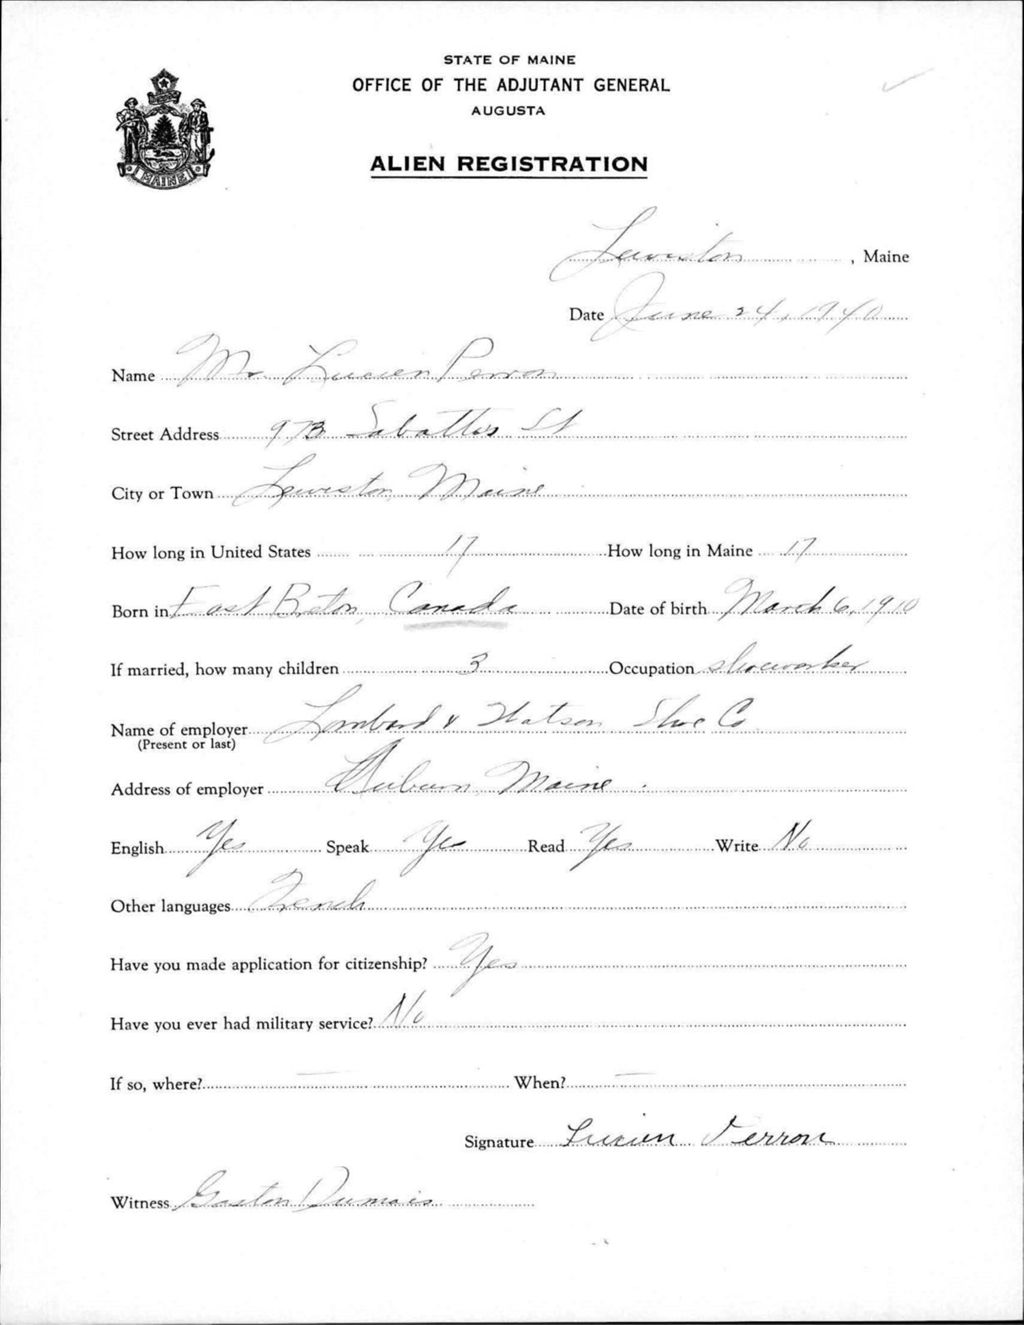 STATE OF MAINE
OFFICE OF THE ADJUTANT GENERAL
AUGUSTA
MAINE
ALIEN REGISTRATION
Lewiston, Maine
Date June 24, 1940
Name Mr. Lucien Perron
Street Address 973 Sabattus St
City or Town Lewiston Maine
How long in United States 17 How long in Maine 17
Born in East Broton, Canada Date of birth March 6, 1910
If married, how many children 3 Occupation shoeworker
Name of employer Lombard & Watson Shoe Co
(Present or last)
Address of employer Auburn, Maine
English Yes Speak Yes Read Yes Write No
Other languages French
Have you made application for citizenship? Yes
Have you ever had military service? No
If so, where? — When? —
Signature Lucien Perron
Witness Gaston Dumais